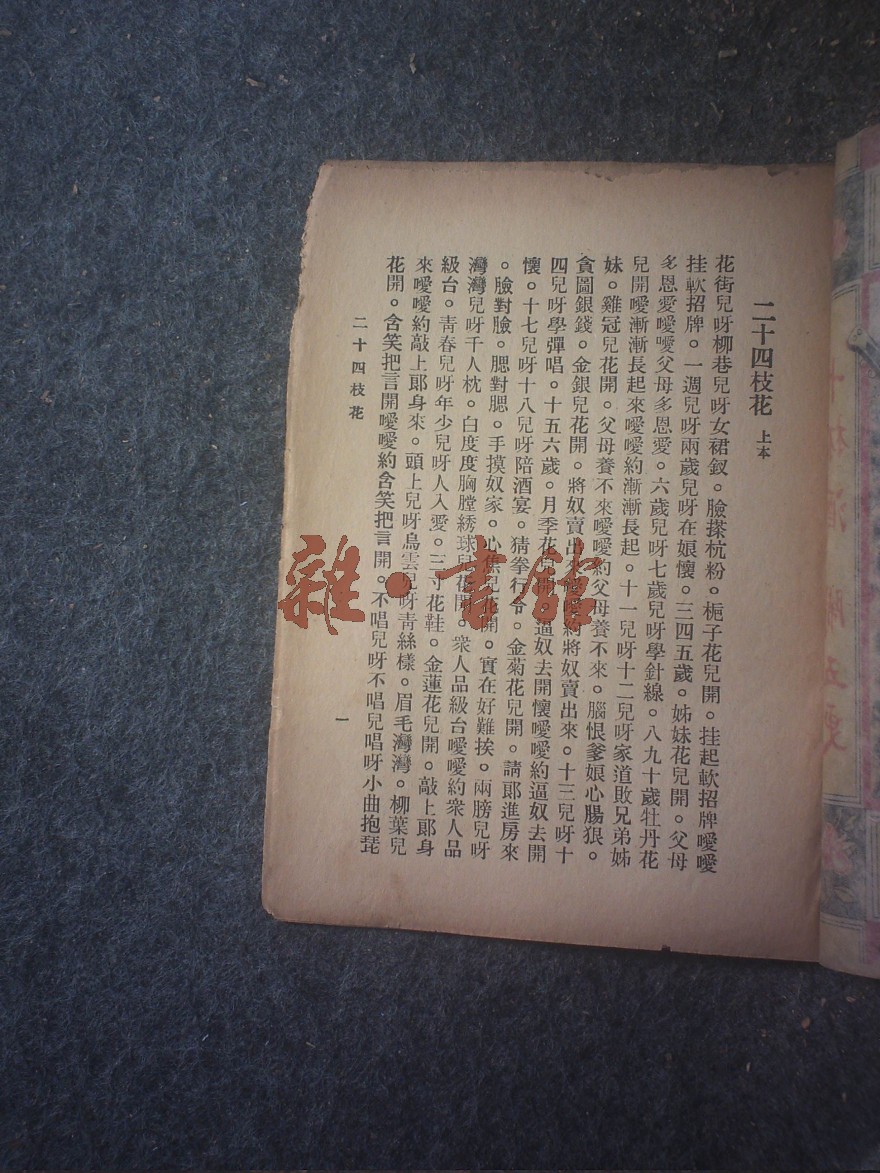 二十四枝花 上本
花街兒呀柳巷兒呀女裙釵。臉搽杭粉。梔子花兒開。挂起軟招牌噯噯
挂軟招牌。一週兒呀兩歲兒呀在娘懷。三四五歲。姊妹花兒開。父母
多恩愛噯噯父母多恩愛。六歲兒呀七歲兒呀學針線。八九十歲牡丹花
兒開噯漸漸長起來噯噯約漸漸長起。十一兒呀十二兒呀家道敗兄弟姊
妹。雞冠兒花開。父母養不來噯噯約父母養不來。腦恨爹娘心腸狠。
貪圖銀錢。金銀兒花開。將奴賣出來噯噯約將奴賣出來。十三兒呀十
四兒呀學彈唱。十五六歲。月季花兒開。逼奴去開懷噯噯約逼奴去開
懷。十七兒呀十八兒呀陪酒宴。猜拳行令。金菊花兒開。請郞進房來
。臉對臉。腮對腮。手摸奴家。心焦兒花開。實在好難挨。兩膀兒呀
灣灣兒呀千人枕。白度度胸膛綉球兒花開。衆人品級台噯噯約衆人品
級台。靑春兒呀年少兒呀人人愛。三寸花鞋。金蓮花兒開。敲上郞身
來噯噯約敲上郞身來。頭上兒呀烏雲兒呀靑絲樣。眉毛灣灣。柳葉兒
花開。含笑把言開噯噯約含笑把言開。不唱兒呀不唱兒唱呀小曲抱琵
二十四枝花
一
雜·書館